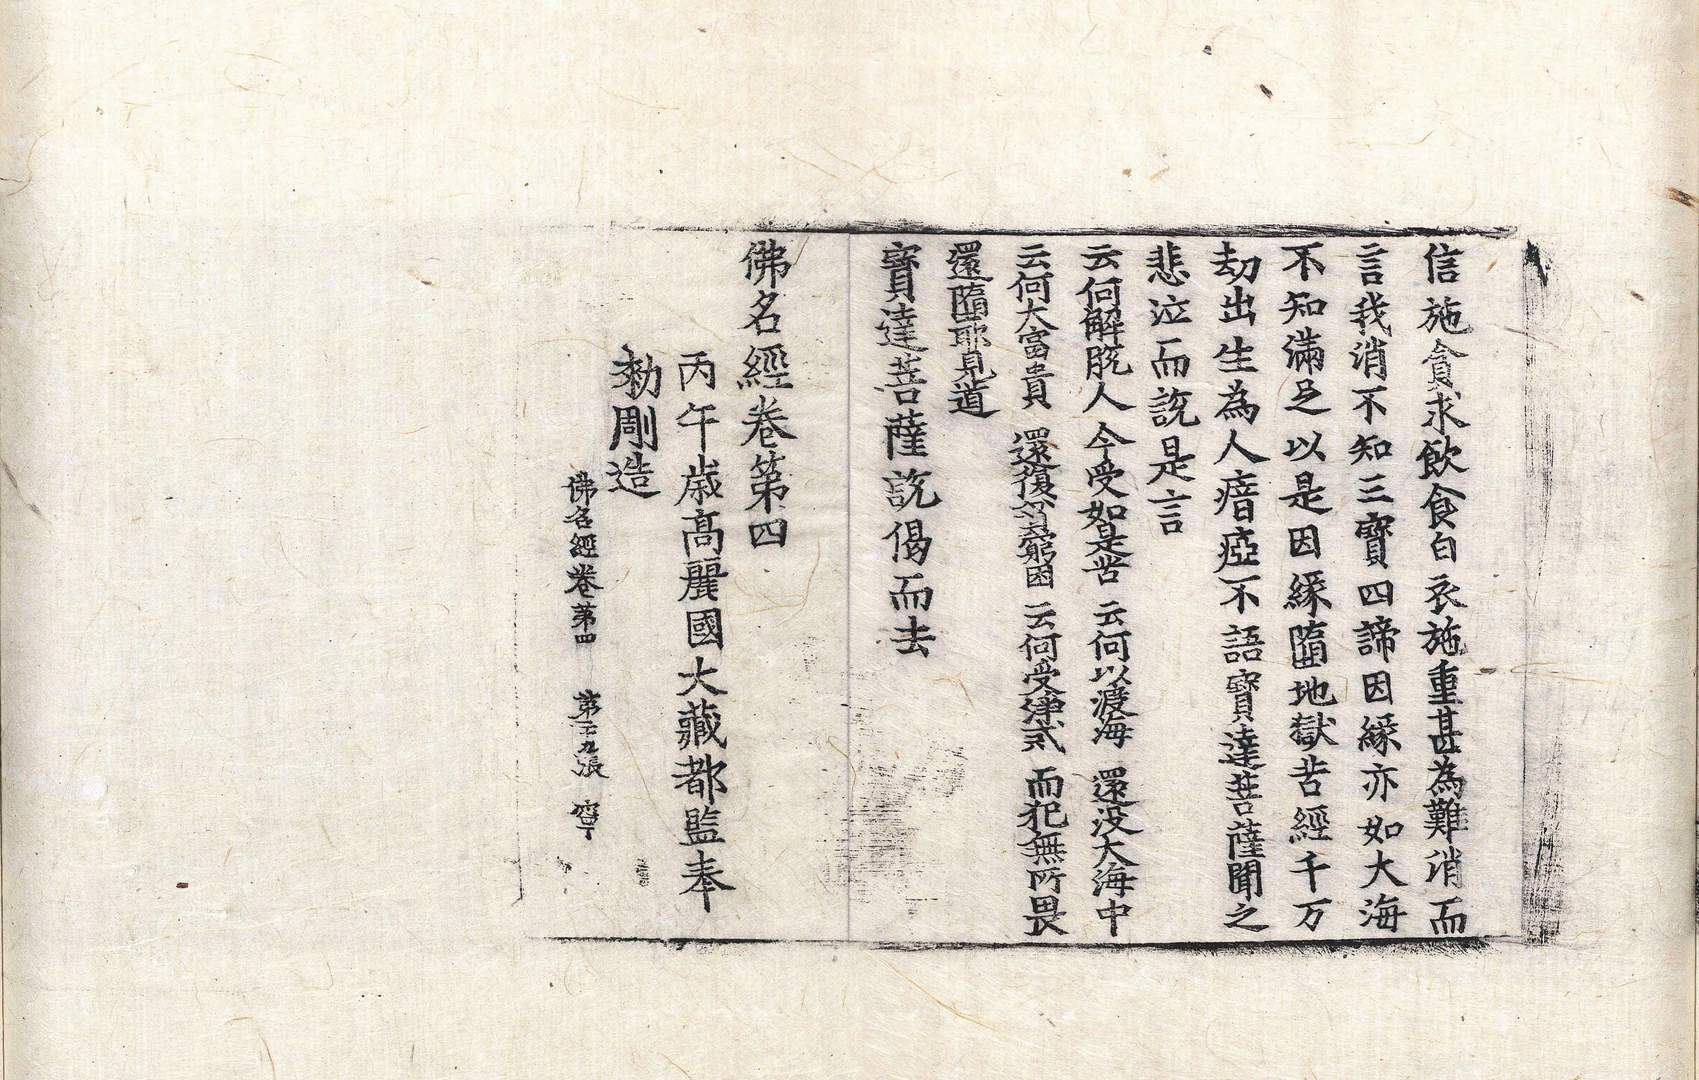 信施貪求飲食白衣施重甚為難消而
言我消不知三寶四諦因緣亦如大海
不知滿足以是因緣墮地獄苦經千万
劫出生為人瘖瘂不語寶達菩薩聞之
悲泣而說是言
云何解脫人 今受如是苦 云何以渡海 還没大海中
云何大富貴 還復貧窮困 云何受淨戒 而犯無所畏
還墮耶見道
寶達菩薩說偈而去
佛名經卷第四
丙午歳高麗國大藏都監奉
勑彫造
佛名經卷第四 第二十九張 寧